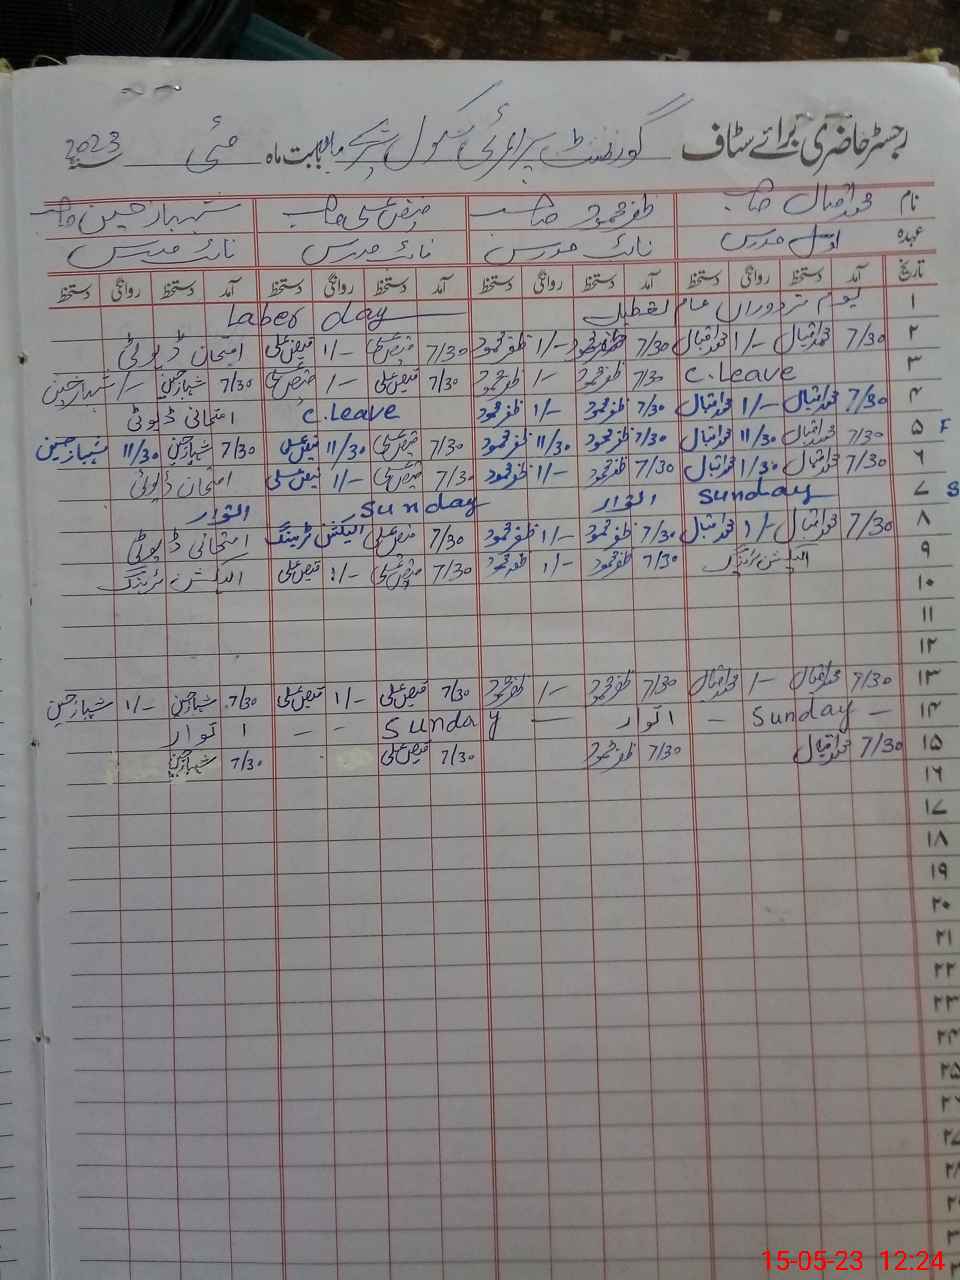 رجسٹر حاضری برائے سٹاف گورنمنٹ پرائمری سکول بابت ماہ مئی سنہ 2023
نام محمد اقبال صاحب ظفر محمود صاحب فیض علی صاحب شہباز حسین صاحب
عہدہ اول مدرس نائب مدرس نائب مدرس نائب مدرس
تاریخ آمد دستخط روانگی دستخط آمد دستخط روانگی دستخط آمد دستخط روانگی دستخط آمد دستخط روانگی دستخط
۱ یوم مزدوراں عام تعطیل Laber day
۲ 7/30 محمد اقبال 1/- محمد اقبال 7/30 ظفر محمود 1/- ظفر محمود 7/30 فیض علی 1/- فیض علی امتحانی ڈیوٹی
۳ C.Leave 7/30 ظفر محمود 1/- ظفر محمود 7/30 فیض علی 1/- فیض علی 7/30 شہباز حسین 1/- شہباز حسین
۴ 7/30 محمد اقبال 1/- محمد اقبال 7/30 ظفر محمود 1/- ظفر محمود C.Leave امتحانی ڈیوٹی
۵ F 7/30 محمد اقبال 11/30 محمد اقبال 7/30 ظفر محمود 11/30 ظفر محمود 7/30 فیض علی 11/30 فیض علی 7/30 شہباز حسین 11/30 شہباز حسین
۶ 7/30 محمد اقبال 1/30 محمد اقبال 7/30 ظفر محمود 1/- ظفر محمود 7/30 فیض علی 1/- فیض علی امتحانی ڈیوٹی
۷ S Sunday اتوار Sunday اتوار
۸ 7/30 محمد اقبال 1/- محمد اقبال 7/30 ظفر محمود 1/- ظفر محمود 7/30 فیض علی الیکشن ٹریننگ امتحانی ڈیوٹی
۹ الیکشن ٹریننگ 7/30 ظفر محمود 1/- ظفر محمود 7/30 فیض علی 1/- فیض علی الیکشن ٹریننگ
۱۰
۱۱
۱۲
۱۳ 7/30 محمد اقبال 1/- محمد اقبال 7/30 ظفر محمود 1/- ظفر محمود 7/30 فیض علی 1/- فیض علی 7/30 شہباز حسین 1/- شہباز حسین
۱۴ — Sunday — اتوار — Sunday — — اتوار
۱۵ 7/30 محمد اقبال 7/30 ظفر محمود 7/30 فیض علی 7/30 شہباز حسین
۱۶
۱۷
۱۸
۱۹
۲۰
۲۱
۲۲
۲۳
۲۴
۲۵
15-05-23 12:24